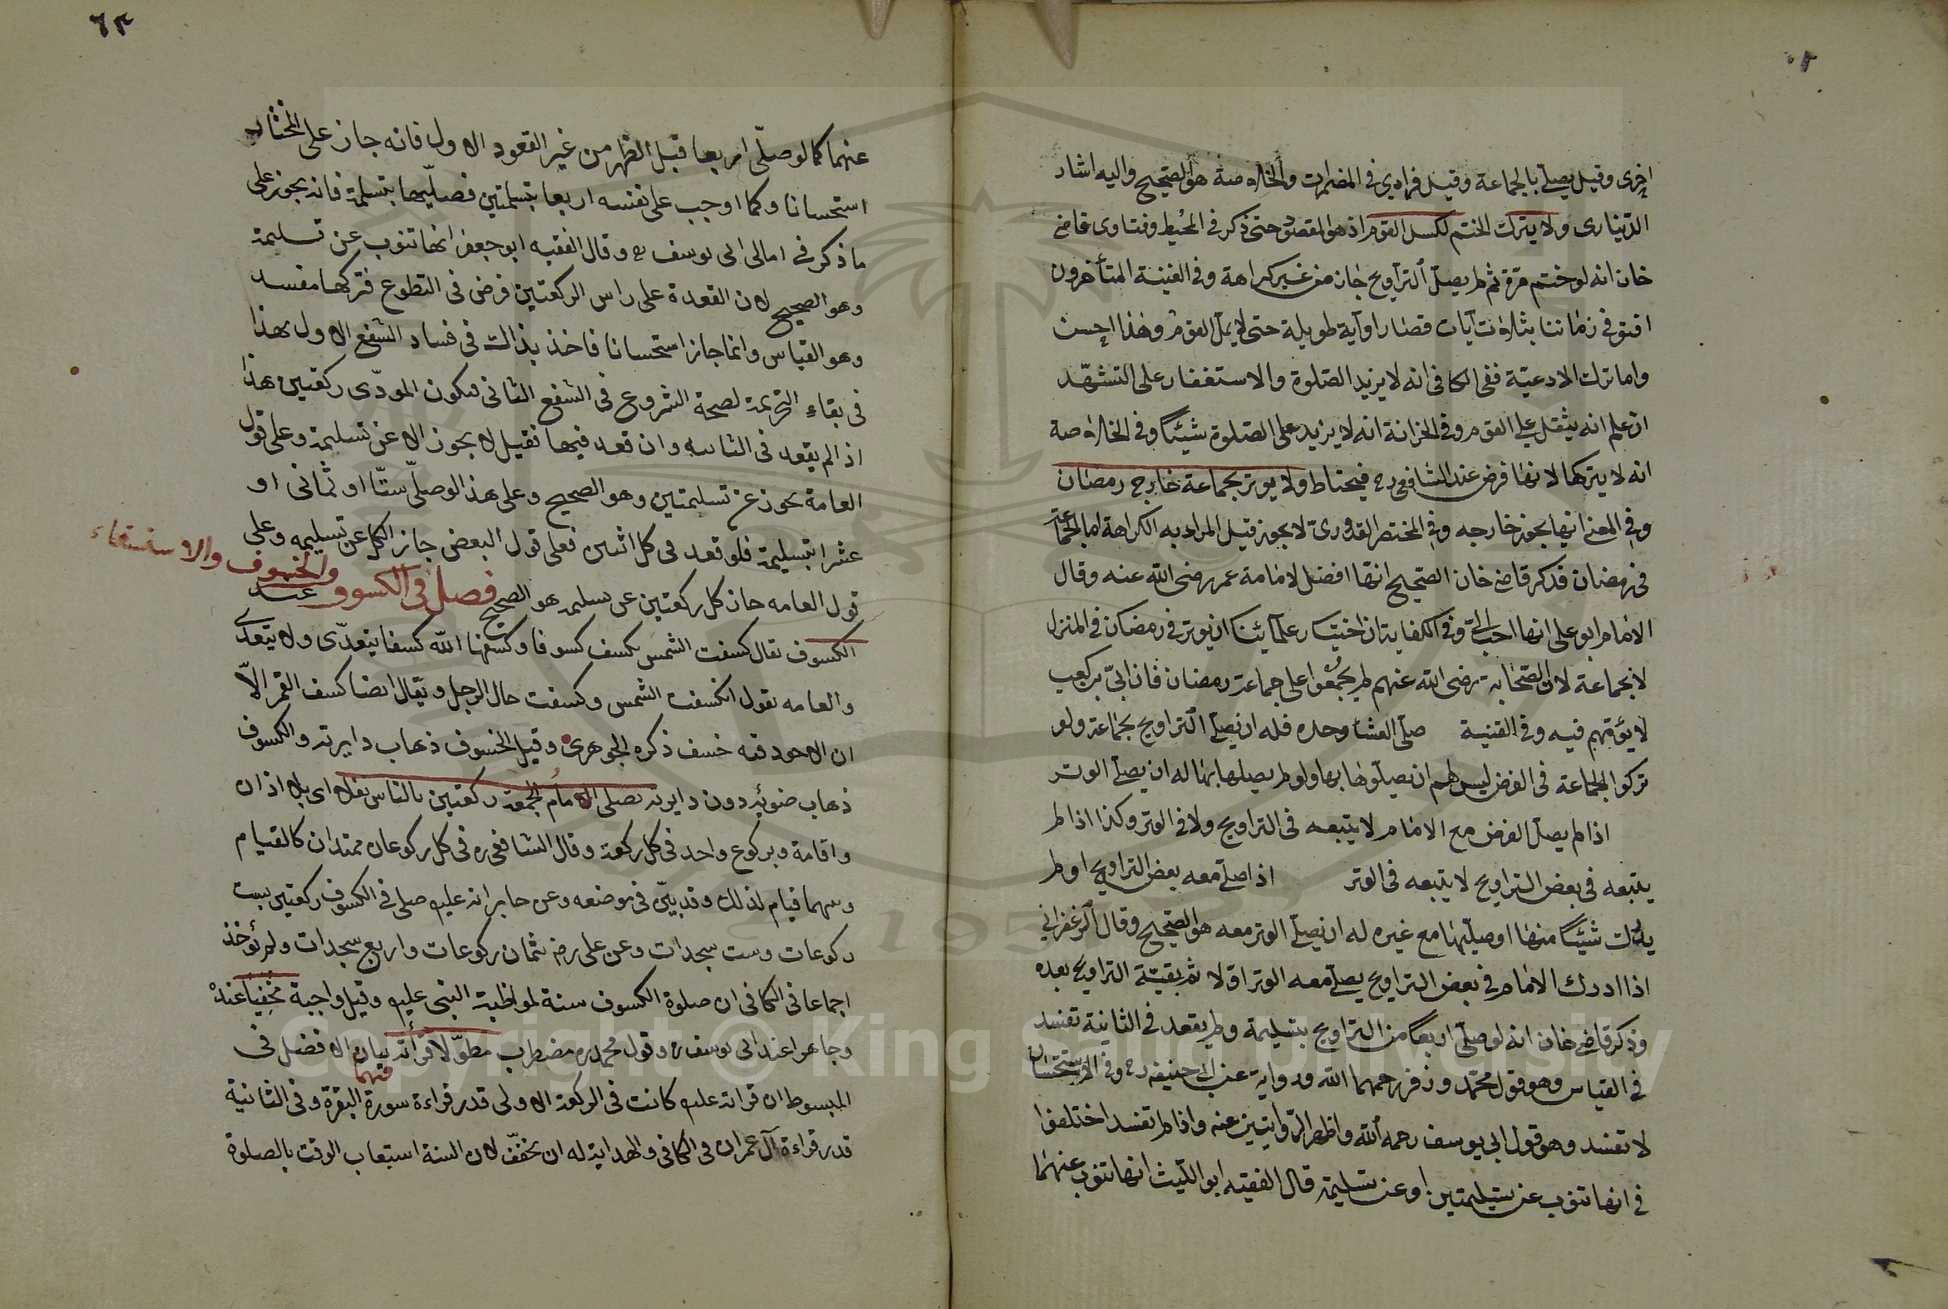 اخرى وقيل يصلى بالجماعة وقيل فرادى في المضمرات والخلاصة هو الصحيح واليه اشار
الديناري ولا يترك الختم لكسل القوم اذ هو المقصود حتى ذكر في المحيط وفتاوى قاضي
خان انه لو ختم مرة ثم لم يصل التراويح جاز من غير كراهة وفي القنية المتأخرون
افتوا في زماننا بثلاث آيات قصار او آية طويلة حتى لا يمل القوم وهذا احسن
واما ترك الادعية ففي الكافي انه لا يزيد الصلوة والاستغفار على التشهد
ان علم انه يثقل على القوم وفي الخزانة انه لا يزيد على الصلوة شيئا وفي الخلاصة
انه لا يتركها لانها فرض عند الشافعي رح فيحتاط ولا يوتر بجماعة خارج رمضان
وفي المختصر القدوري لا يجوز قيل المراد به الكراهة اما الجماعة
في رمضان فذكر قاضي خان الصحيح انها افضل لامامة عمر رضى الله عنه وقال
الامام ابو علي انها احب الي وفي الكفاية ان اختيار علمائنا ان يوتر في رمضان في المنزل
لا بجماعة لان الصحابة رضى الله عنهم لم يجمعوا على جماعة رمضان فان ابي بن كعب
لا يؤمهم فيه وفي القنية صلى العشا وحده فله ان يصلى التراويح بجماعة ولو
تركوا الجماعة في الفرض ليس لهم ان يصلوها بها ولو لم يصلها بها له ان يصلى الوتر
اذا لم يصل الفرض مع الامام لا يتبعه في التراويح ولا في الوتر وكذا اذا لم
يتبعه في بعض التراويح لا يتبعه في الوتر اذا صلى معه بعض التراويح او لم
يدرك شيئا منها او صليها مع غيره له ان يصلى الوتر معه هو الصحيح وقال
اذا ادرك الامام في بعض التراويح يصلى معه الوتر اولا ثم بقية التراويح بعده
وذكر قاضي خان انه لو صلى اربعا من التراويح بتسليمة ولم يقعد في الثانية تفسد
في القياس وهو قول محمد وزفر رحمهما الله ورواية عن ابي حنيفة رح وفي الاستحسان
لا تفسد وهو قول ابي يوسف رحمه الله واظهر الروايتين عنه واذا لم تفسد اختلفوا
في انها تنوب عن تسليمتين او عن تسليمة قال الفقيه ابو الليث انها تنوب عنهما
٦٣
عنهما كما لو صلى اربعا قبل الظهر من غير القعود الاول فانه جاز على المختار
استحسانا وكما اوجب على نفسه اربعا بتسلمتين فصليها بتسلمة فانه يجوز على
ما ذكر في امالى ابى يوسف وقال الفقيه ابو جعفر انها تنوب عن تسليمة
وهو الصحيح لان القعدة على راس الركعتين فرض في التطوع فتركها مفسد
وهو القياس وانما جاز استحسانا فاخذ بذالك في فساد الشفع الاول بهذا
في بقاء التحريمة لصحة الشروع في الشفع الثانى فيكون المودى ركعتين هذا
اذا لم يقعد في الثانيه وان قعد فيها فقيل لا يجوز الا عن تسليمة وعلى قول
العامة يجوز عن تسليمتين وهو الصحيح وعلى هذا لو صلى ستا او ثمانى او
عشرا بتسليمة فلو قعد في كل اثنين فعلى قول البعض جاز الكل عن تسليمه وعلى
قول العامه جاز كل ركعتين عن تسليمه هو الصحيح فصل في الكسوف والخسوف والاستسقاء
الكسوف يقال كسفت الشمس يكسف كسوفا وكسفها الله كسفا يتعدى ولا يتعدى
والعامه تقول انكسفت الشمس وكسفت حال الرجل ويقال ايضا كسف القمر الا
ان الاجود فيه خسف ذكره الجوهري وقيل الخسوف ذهاب دايرته والكسوف
ذهاب ضوئه دون دايرته يصلى امام الجمعة ركعتين بالناس نفلا اى بلا اذان
واقامة وبركوع واحد في كل ركعة وقال الشافعي ره في كل ركوعان ممتدان كالقيام
وبينهما قيام لذلك وقد بين في موضعه وعن جابر انه عليه صلى في الكسوف ركعتين بست
ركوعات وست سجدات وعن على رض ثمان ركوعات واربع سجدات ولم يؤخذ
اجماعا في الكافى ان صلوة الكسوف سنة لمواظبة النبى عليه وقيل واجبة مخفيا عنده
وجاهرا عند ابى يوسف ره وقول محمد ره مضطرب مطولا قرأته فيهما بيان الافضل في
المبسوط ان قراته عليه كانت في الركعة الاولى قدر قراءة سورة البقرة وفى الثانية
قدر قراءة آل عمران وفى الكافى والهداية له ان يخفف لان السنة استيعاب الوقت بالصلوة
Copyright © King Saud University